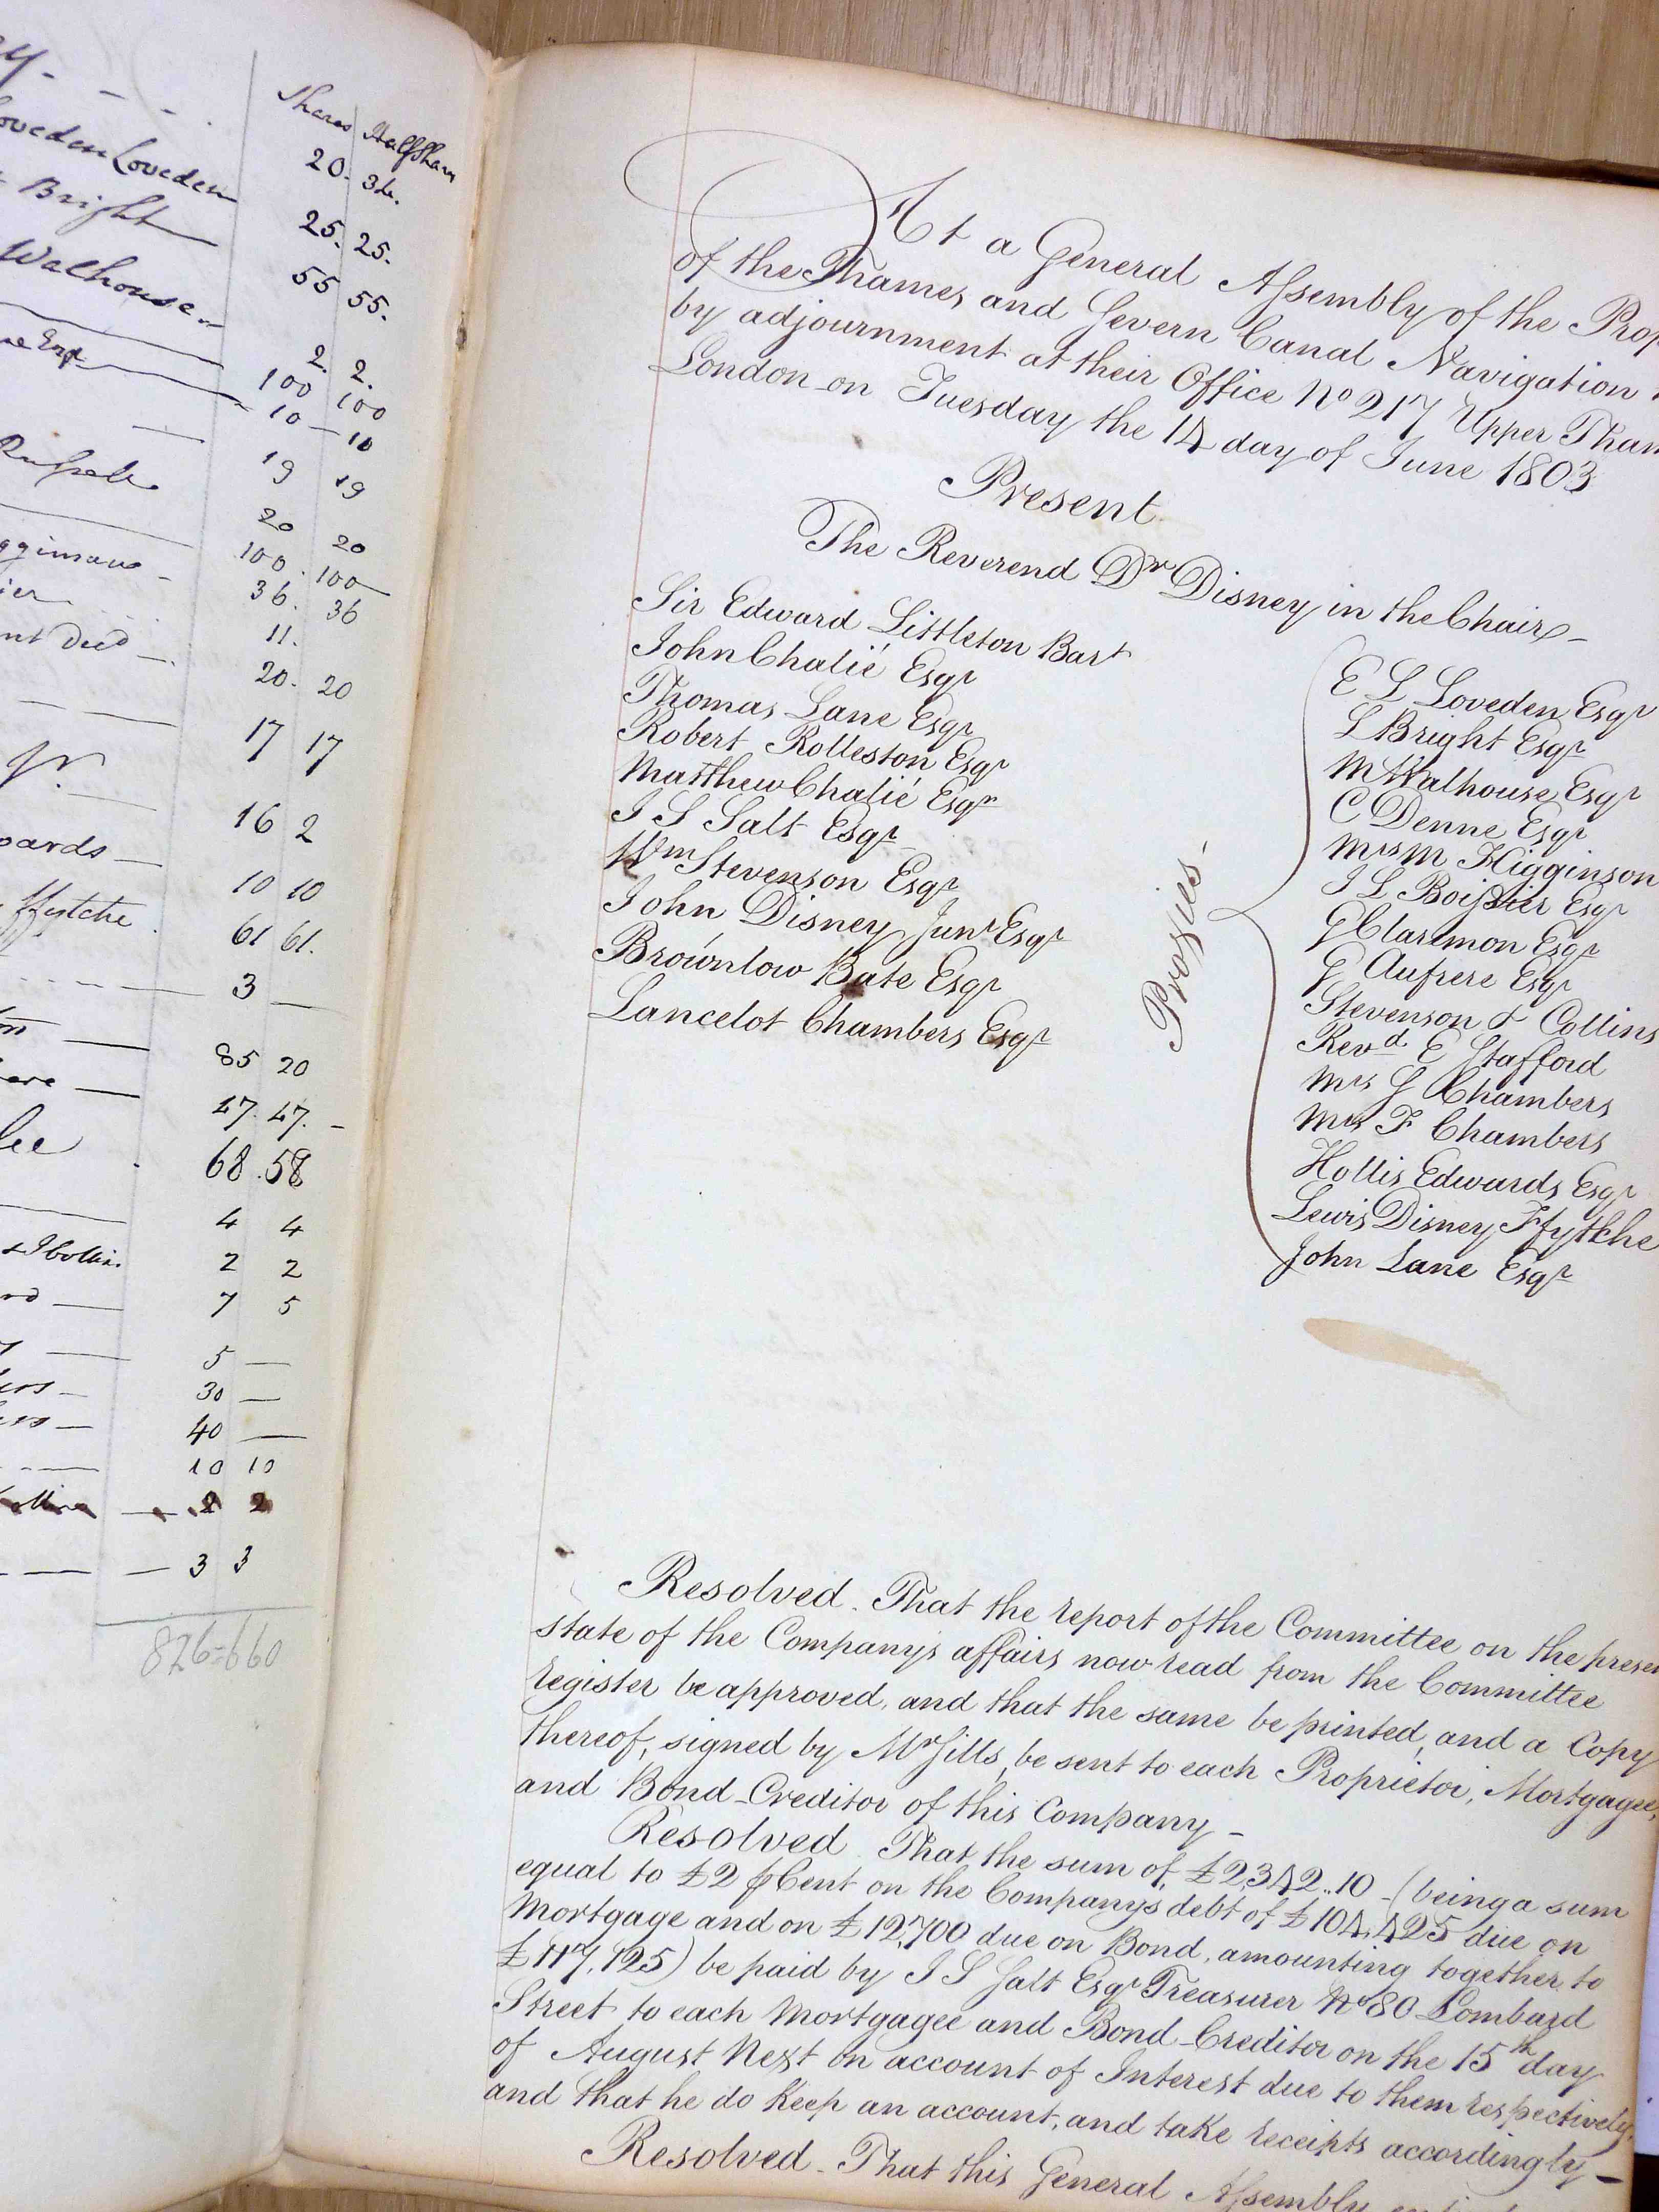 Shares Half Shares
Loveden Loveden 20. 32.
Bright 25. 25.
Walhouse 55 55.
Esqr 2. 2.
100 100
10 10
19 19
20 20
100. 100
ier 36. 36
nt Died 11.
20. 20
17 17
16 2
10 10
ffytche 61 61.
3 —
85 20
47. 47.
68. 58
4 4
2 2
7 5
5 —
30 —
40 —
10 10
2 2
3 3
826=660
At a General Assembly of the Prop
of the Thames and Severn Canal Navigation
by adjournment at their Office No 217 Upper Tham
London on Tuesday the 14 day of June 1803
Present
The Reverend Dr Disney in the Chair
Sir Edward Littleton Bart
John Chalié Esqr
Thomas Lane Esqr
Robert Rolleston Esqr
Matthew Chalié Esqr
J S Salt Esqr
Wm Stevenson Esqr
John Disney Junr Esqr
Brownlow Bate Esqr
Lancelot Chambers Esqr
Proxies
E L Loveden Esqr
L Bright Esqr
M Walhouse Esqr
C Denne Esqr
Mrs M Higginson
J L Boissier Esqr
G Clarmon Esqr
G Aufrere Esqr
Stevenson & Collins
Revd E Stafford
Mrs S Chambers
Mrs F Chambers
Hollis Edwards Esqr
Lewis Disney Ffytche
John Lane Esqr
Resolved. That the report of the Committee on the presen
state of the Company's affairs now read from the Committee
register be approved, and that the same be printed, and a Copy
thereof, signed by Mr Sills, be sent to each Proprietor, Mortgagee,
and Bond-Creditor of this Company
Resolved That the sum of £2,342..10 (being a sum
equal to £2 p Cent on the Company's debt of £104,425 due on
Mortgage and on £12,700 due on Bond, amounting together to
£117,125) be paid by J S Salt Esqr Treasurer No 80 Lombard
Street to each Mortgagee and Bond-Creditor on the 15th day
of August Next on account of Interest due to them respectively,
and that he do keep an account, and take receipts accordingly
Resolved. That this General Assembly